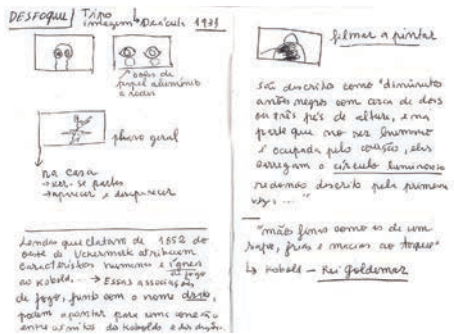 DESFOQUE
Tripo
imagem Drácula 1931
olhos de
papel alumínio
a rodar
plano geral
na casa
→ ver-se partes
→ aparecer e desaparecer
Lendas que datam de 1852 do
oeste de Uckermark atribuem
características humanas e ígneas
ao Kobold, ... → Essas associações
de fogo, junto com o nome
podem apontar para uma conexão
entre os mitos do Kobolds e
filmar a pintar
são descrito como "diminutos
anões negros com cerca de dois
ou três pés de altura, e na
parte que no ser humano
é ocupada pelo coração, eles
carregam o círculo luminoso
redondo descrito pela primeira
vez, ... "
"mãos finas como as de um
sapo, frias e macias ao toque"
↳ Kobold – Rei Goldemar